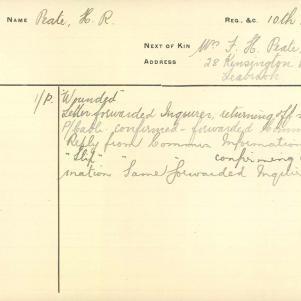 NAME Peate, H. R. REG. &C. 10th.
NEXT OF KIN Mrs F. H. Peate
ADDRESS 28 Kensington
Seabrook
1/P. "Wounded"
Letter forwarded Inquirer, returning off
P/Cabl. confirmed - forwarded
Reply from Commrs Information
"Slip" " " confirming
mation Same forwarded Inquir